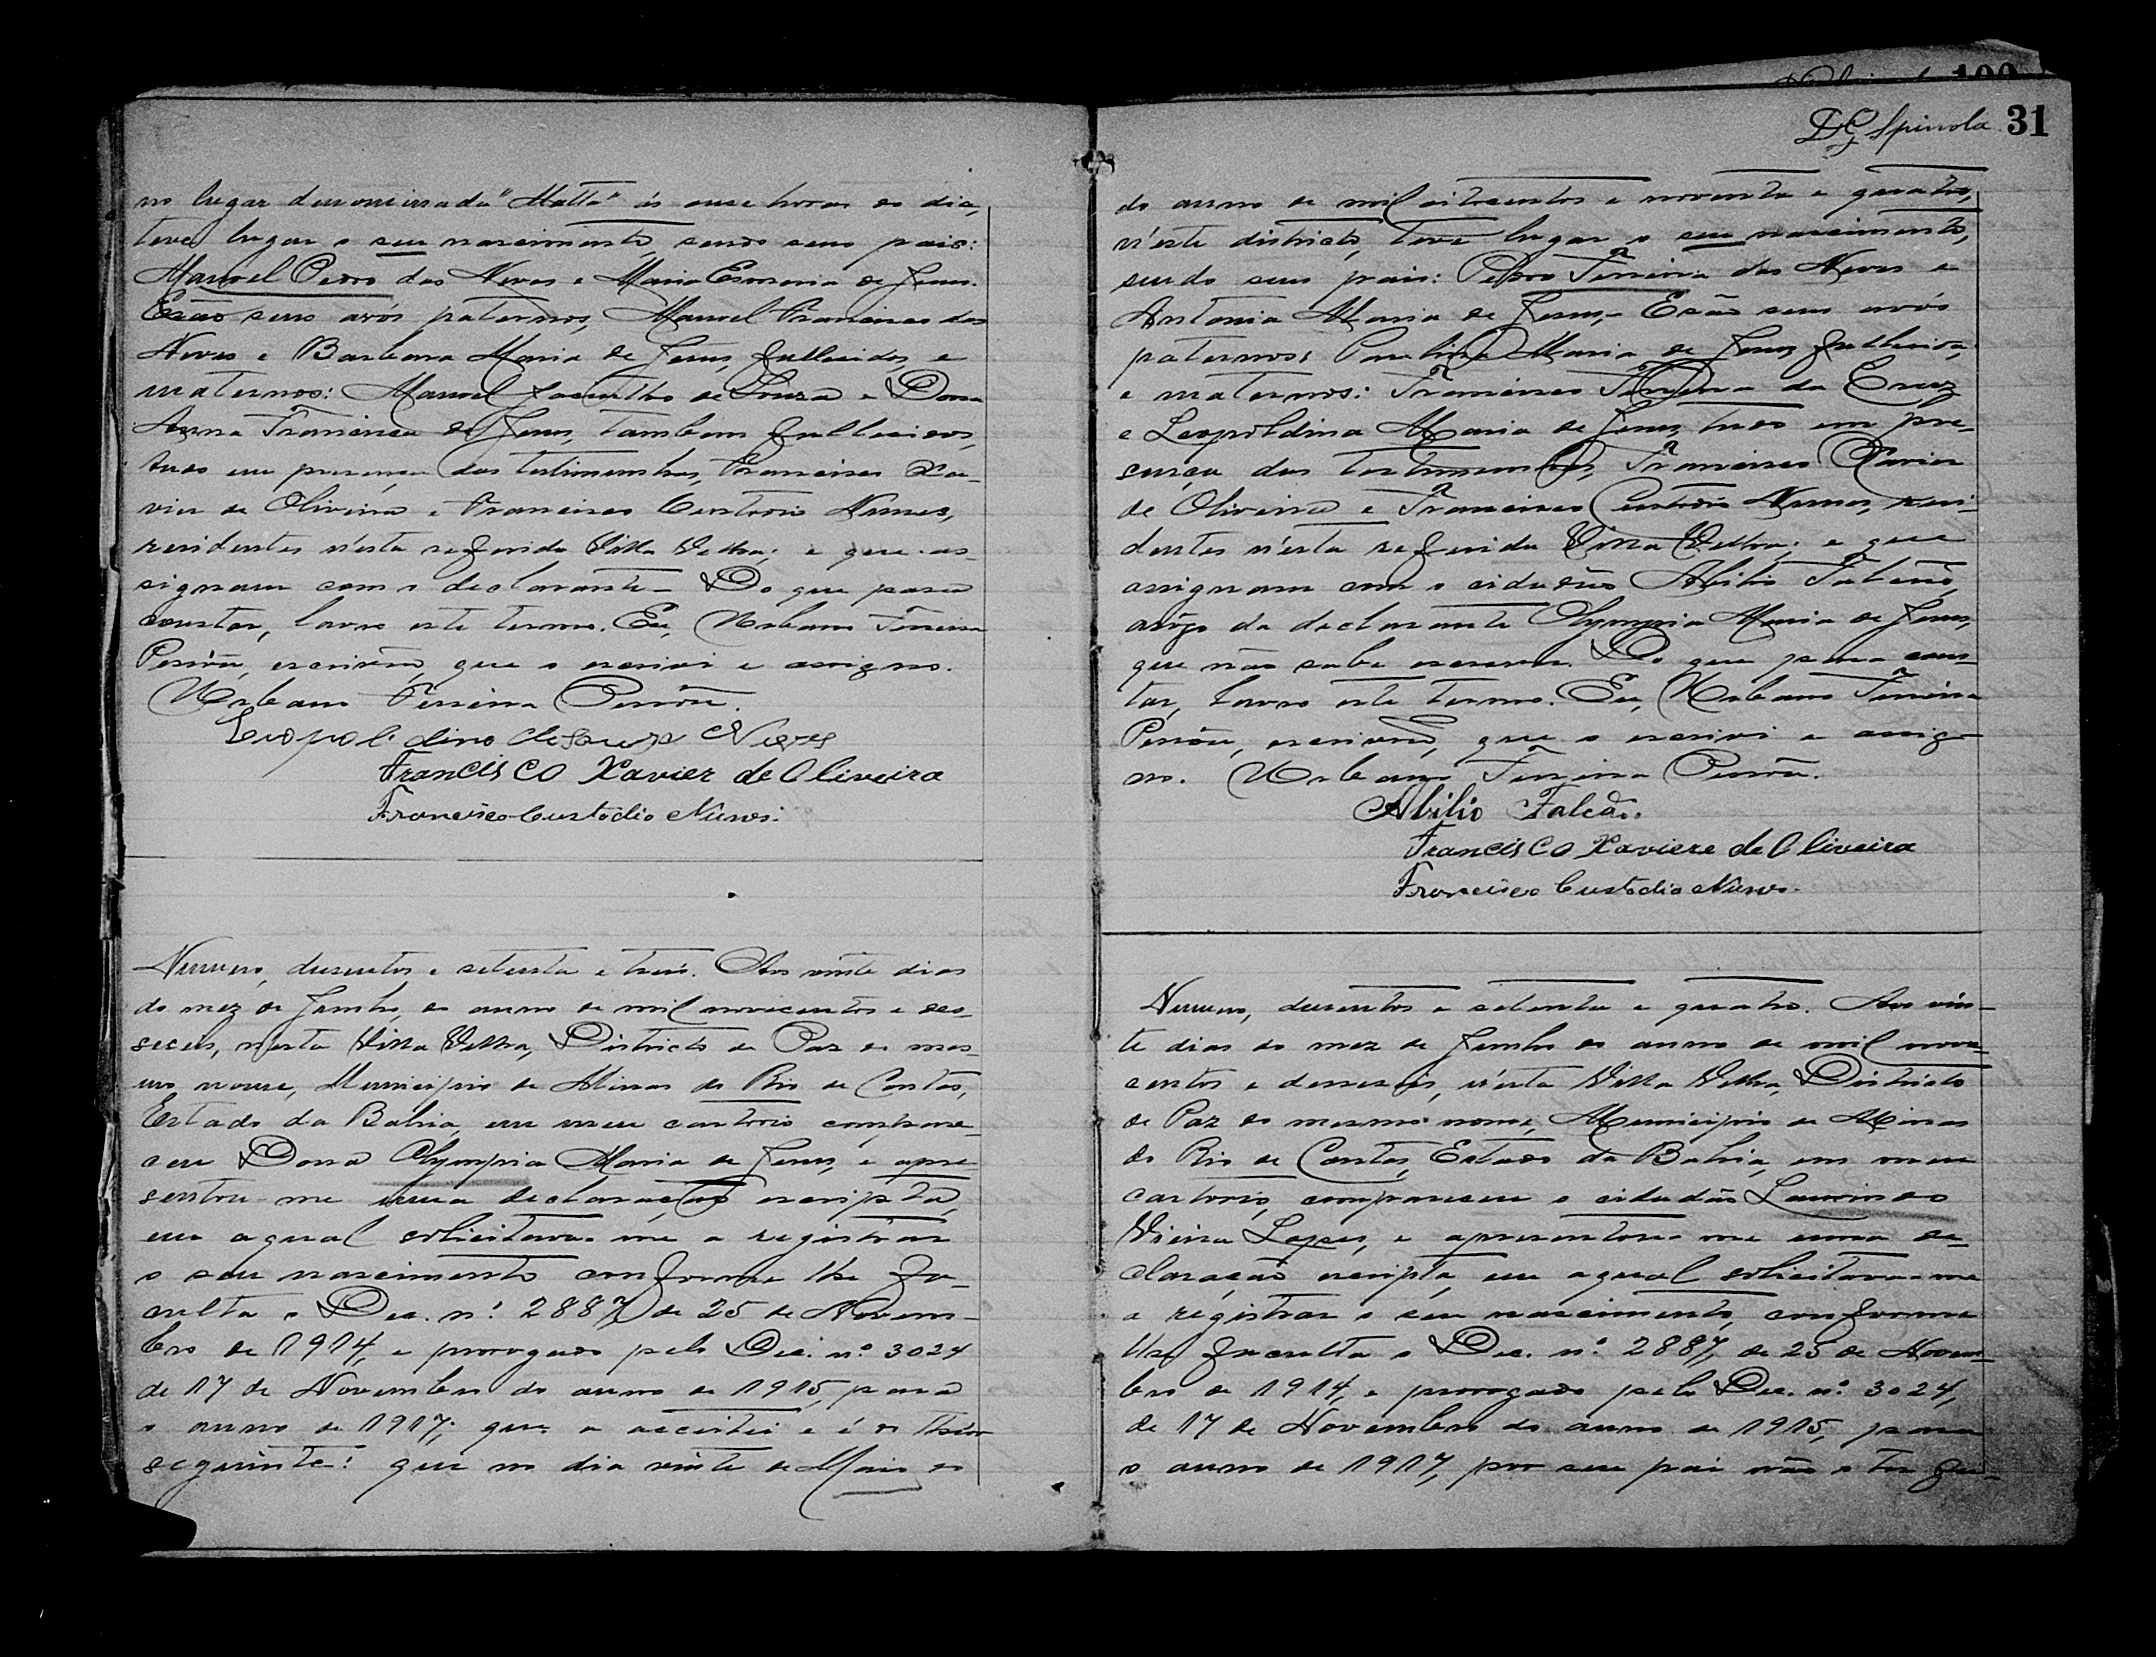 no lugar denominada "Matta" ás onze horas do dia,
teve lugar o seu nascimento, sendo seus pais:
Manoel Pedro das Neves e Maria Esmeria de Jesus.
Erão seus avós paternos, Manoel Francisco das
Neves e Barbara Maria de Jesus, fallecidos, e
maternos: Manoel de Souza e Dona
Anna Francisca de Jesus, tambem fallecidos,
tudo em presença das testimunhas, Francisco Xa-
vier de Oliveira e Francisco Custodio Nunes,
residentes n'esta referida Villa Velha; e que as-
signam com o declarante. Do que para
constar, lavro este termo. Eu, Urbano Ferreira
escrivão, que o escrivi e assigno.
Urbano Ferreira
Leopoldino de Souza Neves
Francisco Xavier de Oliveira
Francisco Custodio Nunes.
Numero, duzentos e setenta e treis. Aos vinte dias
do mez de Junho, do anno de mil novecentos e des-
seseis, nesta Villa Velha, Districto de Paz do mes-
mo nome, Municipio de Minas do Rio de Contas,
Estado da Bahia, em meu cartorio compare-
ceu Dona Olympia Maria de Jesus, e apre-
sentou-me uma declaração escripta,
em a qual solicitava-me a registrar
o seu nascimento conforme lhe fa-
culta o Dec. nº. 2887 de 25 de Novem-
bro de 1914, e prorogado pelo Dec. nº 3024
de 17 de Novembro do anno de 1915, para
o anno de 1917; que a acceitei e é do theor
seguinte: que no dia vinte de Maio do
D G Spinola 31
do anno de mil oitocentos e noventa e quatro,
n'este districto, teve lugar o seu nascimento,
sendo seus pais: Pedro Ferreira das Neves e
Antonia Maria de Jesus,- Erão seus avós
paternos: Paulina Maria de Jesus fallecida,
e maternos: Francisco da Cruz
e Leopoldina Maria de Jesus, tudo em pre-
sença das testimunhas, Francisco Xavier
de Oliveira e Francisco Custodio Nunes, resi-
dentes n'esta referida Villa Velha; e que
assignam com o cidadão Abilio Falcão,
arôgo da declarante Olympia Maria de Jesus,
que não sabe escrever. Do que para cons-
tar, lavro este termo. Eu, Urbano Ferreira
escrivão, que o escrivi e assig-
no. Urbano Ferreira
Abilio Falcão.
Francisco Xaviere de Oliveira
Francisco Custodio Nunes.
Numero, duzentos e setenta e quatro. Aos vin-
te dias do mez de Junho do anno de mil nove-
centos e desseseis, n'esta Villa Velha, Districto
de Paz do mesmo nome, Municipio de Minas
do Rio de Contas, Estado da Bahia, em meu
cartorio, compareceu o cidadão Laurindo
Vieira Lopes, e apresentou-me uma de-
claração escripta, em a qual solicitava-me
a registrar o seu nascimento, conforme
lhe faculta o Dec. nº. 2887, de 25 de Novem-
bro de 1914, e prorogado pelo Dec. nº. 3024,
de 17 de Novembro do anno de 1915, para
o anno de 1917, por seu pai não o ter fei-